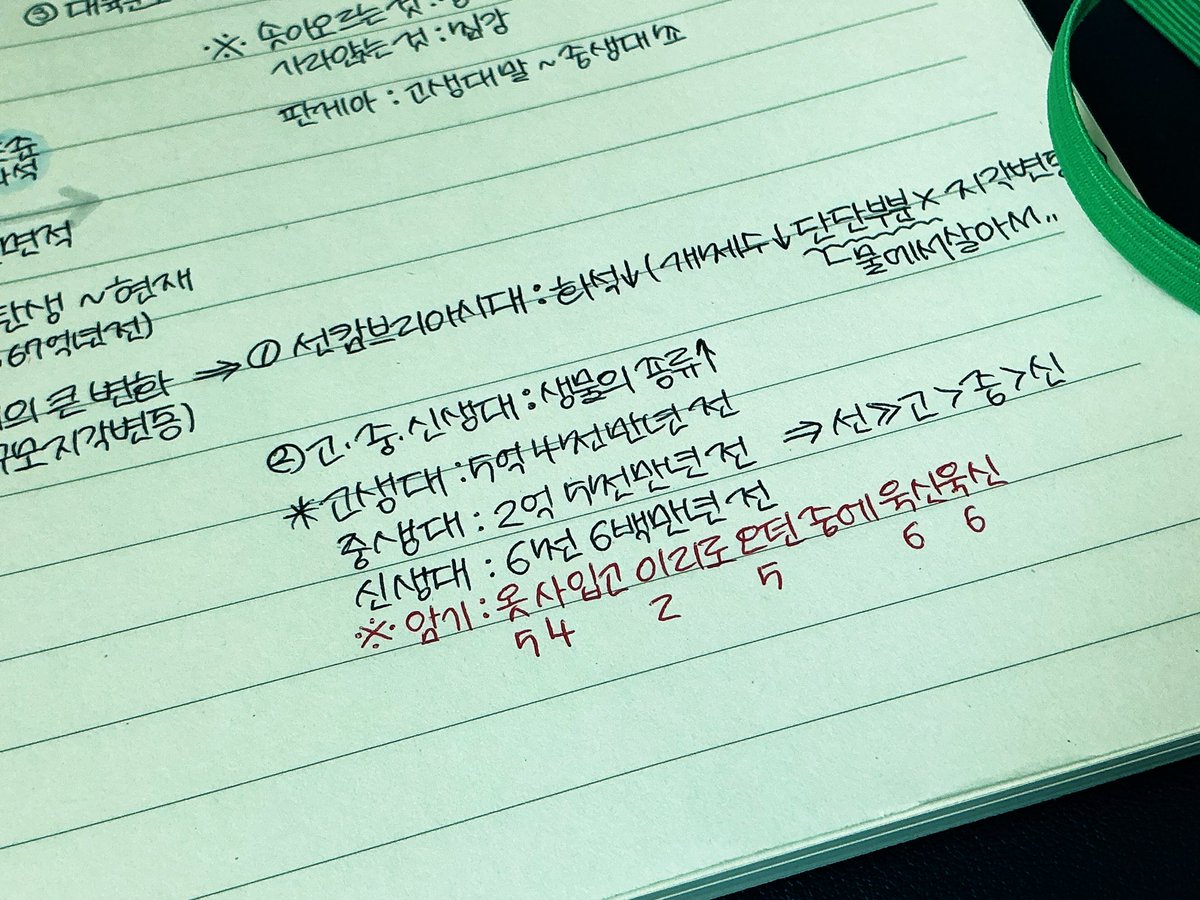 ③ 대륙
※ 솟아오르는 것 :
가라앉는 것 : 침강
판게아 : 고생대 말 ~ 중생대 초
표준
화석
면적
탄생 ~ 현재
67억년 전)
의 큰 변화
규모 지각변동)
⇒ ① 선캄브리아시대 : 화석↓ ( 개체수↓ 단단부분× 지각변동
물에서 살아서..
② 고·중·신생대 : 생물의 종류↑
* 고생대 : 5억 4천만년 전
중생대 : 2억 5천만년 전 ⇒ 선≫고>중>신
신생대 : 6천 6백만년 전
※ 암기 : 옷사입고 이리로 오던 중에 육신육신
5 4 2 5 6 6